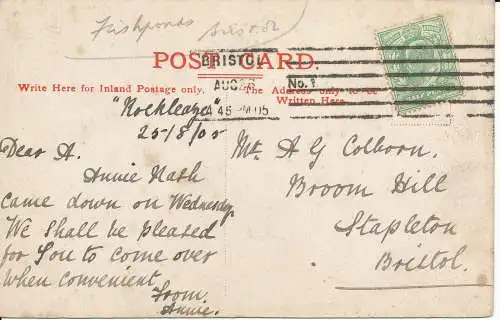 Fishponds Bristol
POST CARD.
BRISTOL
AUG 25
4 45 PM 05
No. 1
Write Here for Inland Postage only.
The Address only to be
Written Here.
"Rockleaze"
25-/8/05
Dear A.
Annie Nash
came down on Wednesday,
We shall be pleased
for You to come over
when convenient
From.
Annie.
Mr. A G Colborn.
Broom Hill
Stapleton
Bristol.